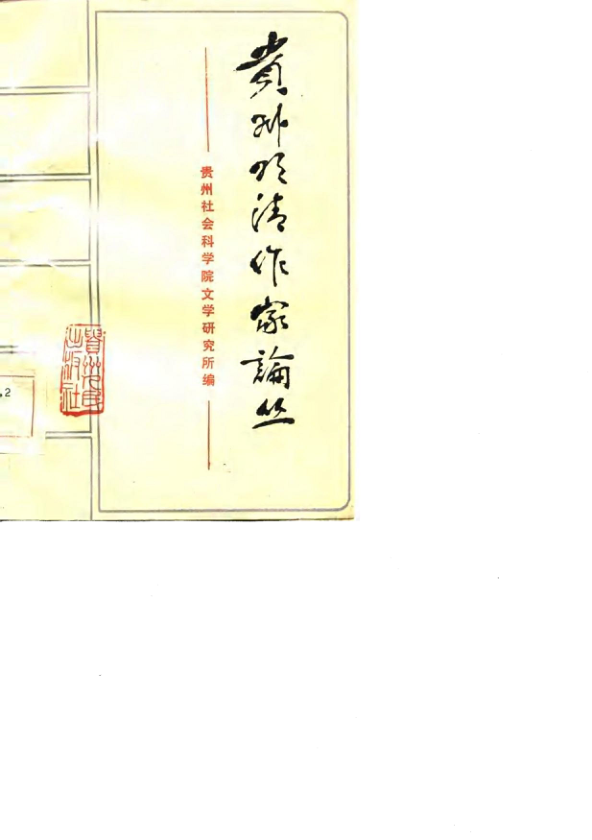 貴州明清作家論丛
贵州社会科学院文学研究所编
貴州人民
出版社
.2